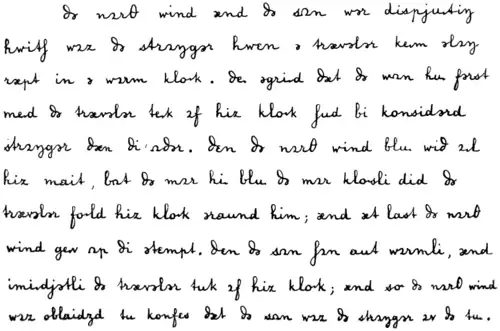 ðə nɔrθ wind ænd ðə sʌn wər dispjuːtiŋ
hwitʃ wɔz ðə strɔŋgər hwen ə trævələr keim əlɔŋ
ræpt in ə wɔrm klouk. ðei əgriːd ðæt ðə wʌn huː fərst
meid ðə trævələr teik ɔf hiz klouk ʃud bi konsidərd
strɔŋgər ðæn ði ʌðər. ðen ðə nɔrθ wind bluː wið ɔl
hiz mait, bʌt ðə mɔr hiː bluː ðə mɔr klousli did ðə
trævələr fould hiz klouk əraund him; ænd æt last ðə nɔrθ
wind geiv ʌp ði ətempt. ðen ðə sʌn ʃɔn aut wɔrmli, ænd
imiːdjətli ðə trævələr tuk ɔf hiz klouk; ænd so ðə nɔrθ wind
wɔz oblaidʒd tu konfes ðæt ðə sʌn wɔz ðə strɔŋgər ɔv ðə tuː.